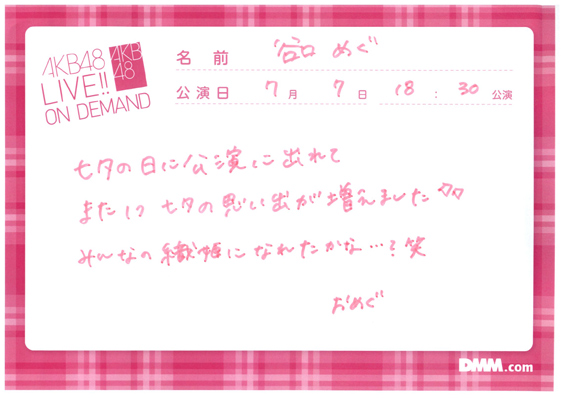 AKB48
LIVE!!
ON DEMAND
AKB
48
名前 谷口 めぐ
公演日 7月 7日 18:30 公演
七夕の日に公演に出れて
また1つ 七夕の思い出が増えました
みんなの織姫になれたかな…?笑
おめぐ
DMM.com